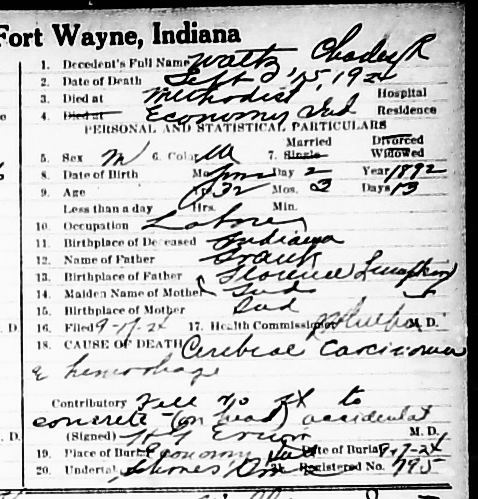 Fort Wayne, Indiana
1. Decedent's Full Name Waltz Charles R
2. Date of Death Sept 15, 192
3. Died at Methodist Hospital
4. Died at Economy Ind Residence
PERSONAL AND STATISTICAL PARTICULARS
Married Divorced
5. Sex M 6. Color W 7. Single Widowed
8. Date of Birth Mo. June Day 2 Year 1892
9. Age Yrs. 32 Mos. 3 Days 13
Less than a day Hrs. Min.
10. Occupation Laborer
11. Birthplace of Deceased Indiana
12. Name of Father Frank
13. Birthplace of Father Florence
14. Maiden Name of Mother Ind
15. Birthplace of Mother Ind
D. 16. Filed 9-17-24 17. Health Commissioner M. D.
18. CAUSE OF DEATH Cerebral Carcinoma
& hemorrhage
Contributory Fall 20 ft to
concrete (on head) accidental
D. (Signed) M. D.
19. Place of Burial Economy Ind Date of Burial 9-17-24
20. Undertaker Registered No. 795